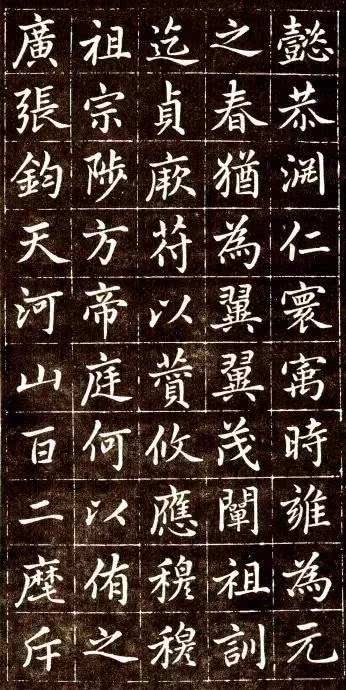 懿恭淵仁寰寓時雍為元
之春猶為翼翼茂闡祖訓
迄貞厥符以蕒攸應穆穆
祖宗陟方帝庭何以侑之
廣張鈞天河山百二麾斥